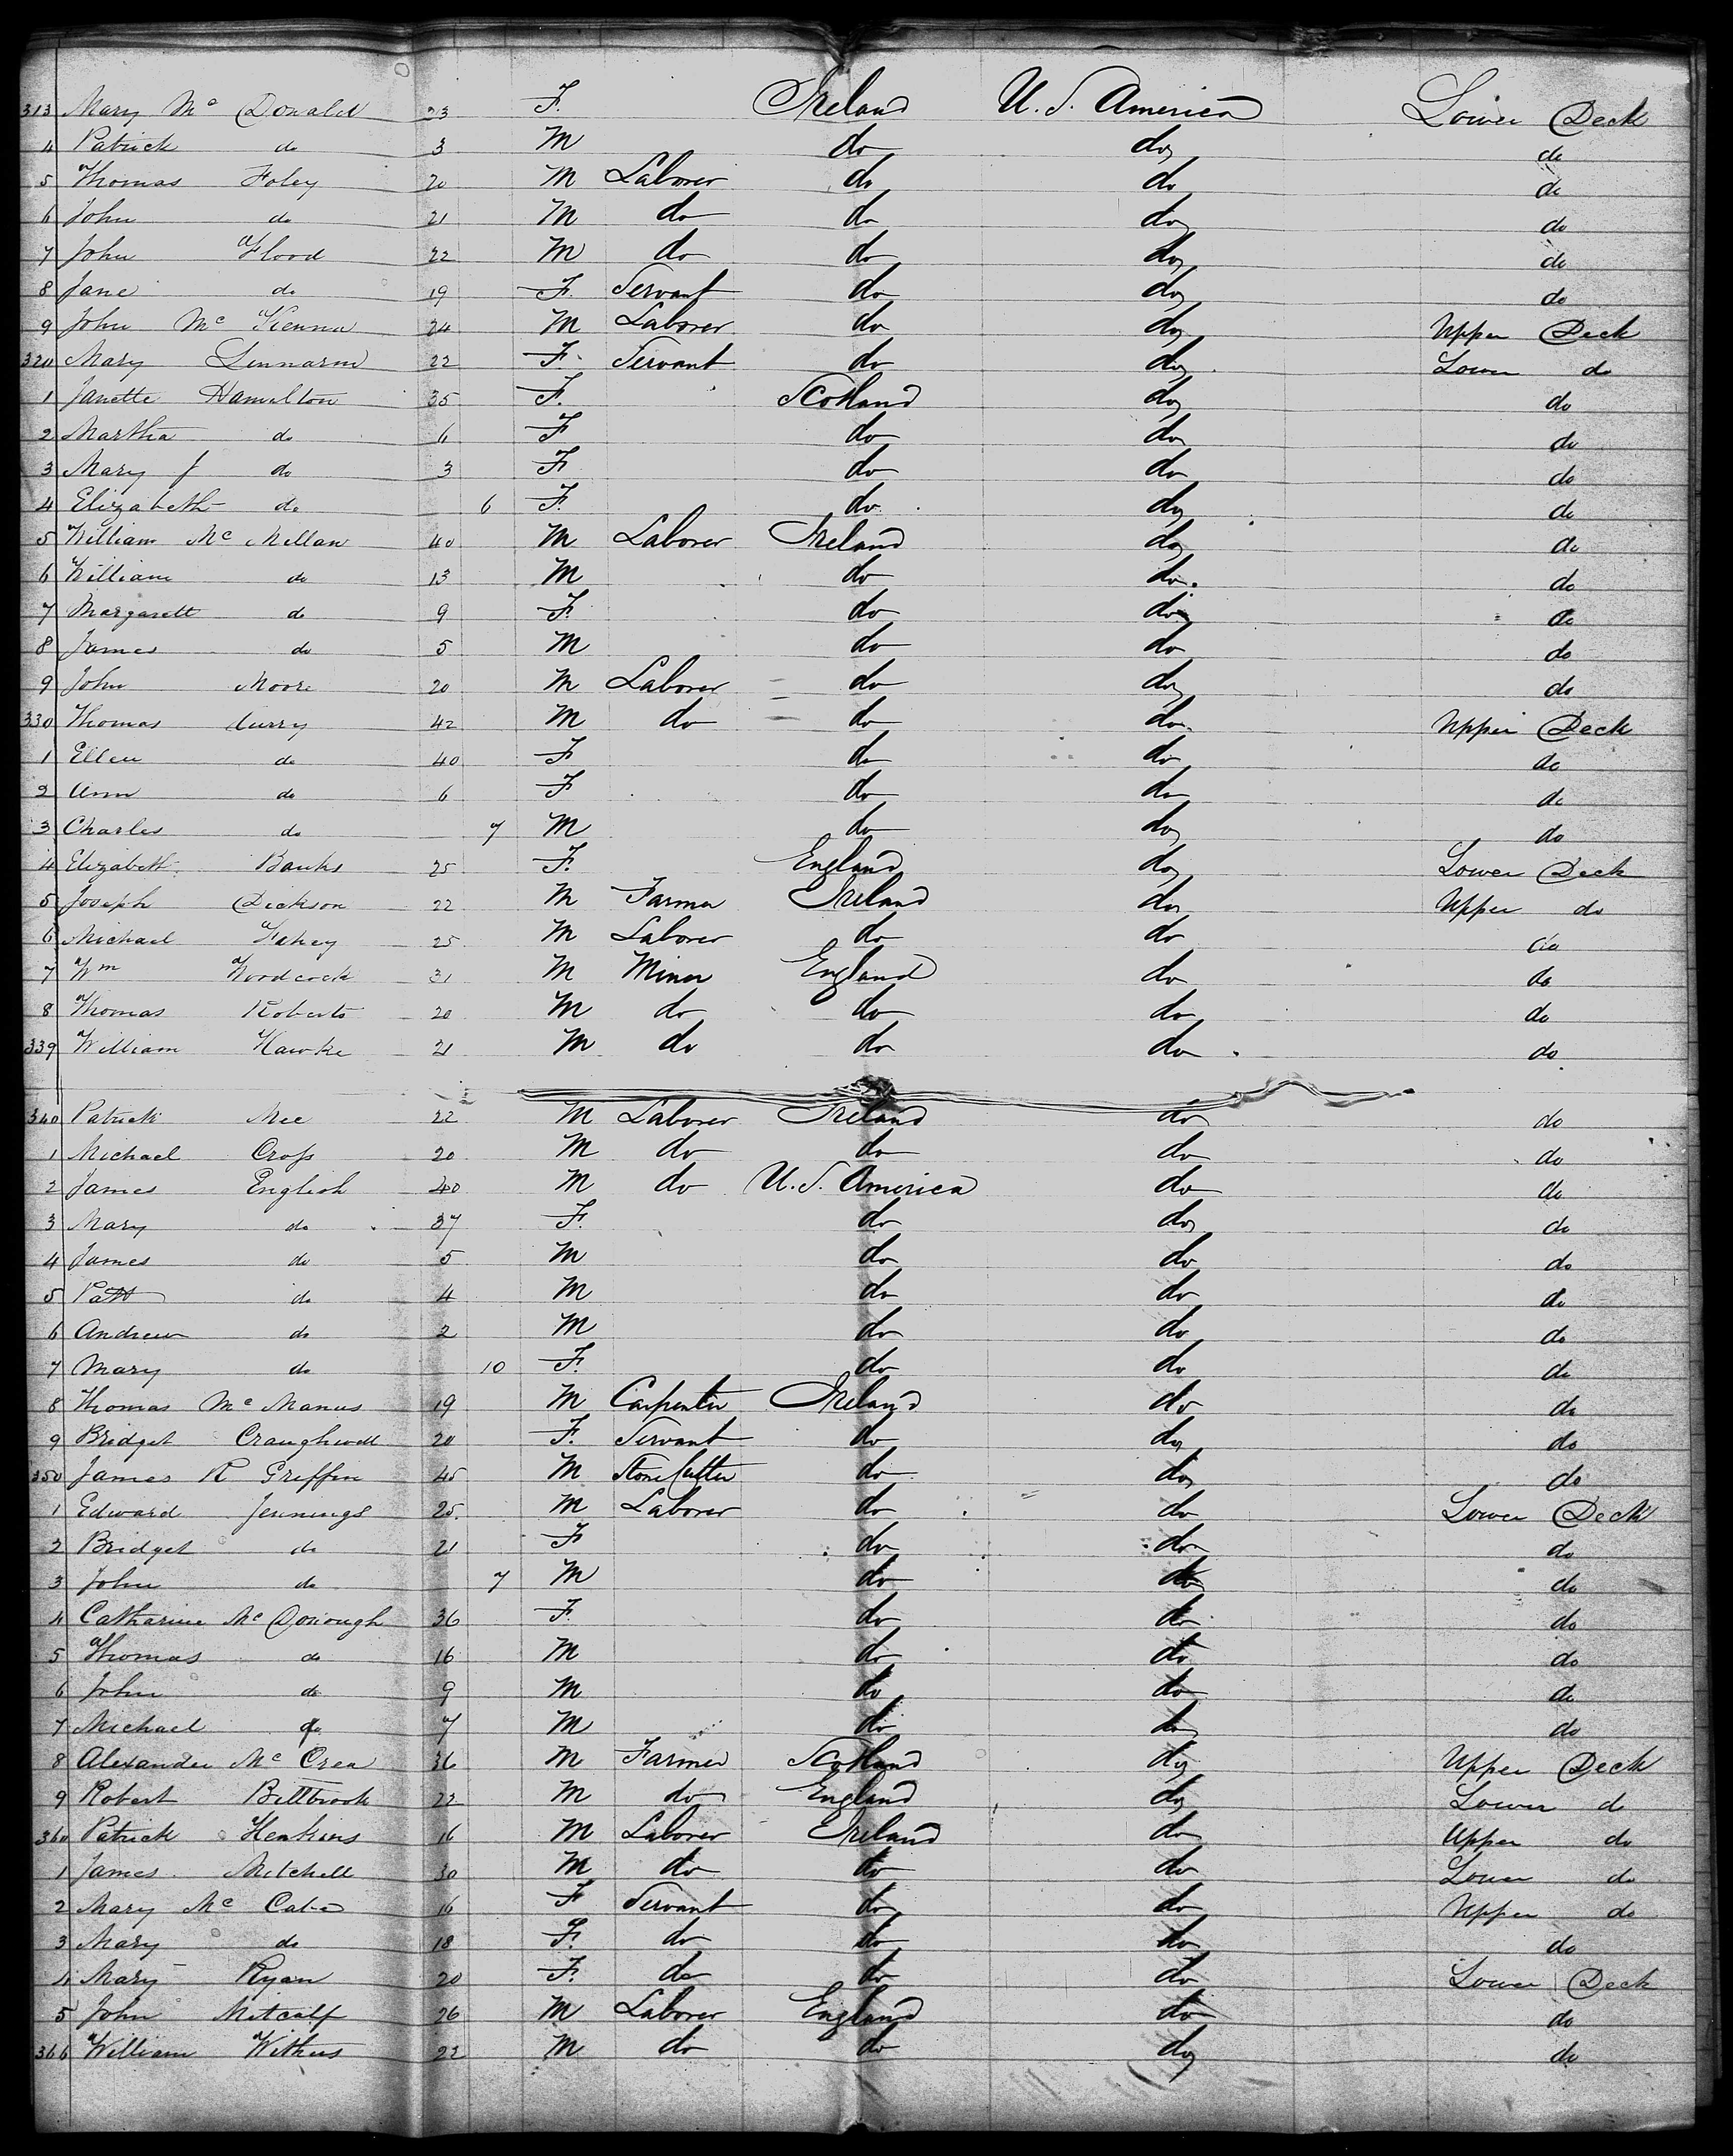 313 Mary Mc Donald 23 F. Ireland U.S. America Lower Deck
4 Patrick do 3 M do do do
5 Thomas Foley 20 M Laborer do do do
6 John do 21 M do do do do
7 John Flood 22 M do do do do
8 Jane do 19 F. Servant do do do
9 John Mc Kenna 24 M Laborer do do Upper Deck
320 Mary 22 F. Servant do do Lower do
1 Janette Hamilton 35 F. Scotland do do
2 Martha do 6 F do do do
3 Mary J do 3 F do do do
4 Elizabeth do 6 F. do do do
5 William Mc Millan 40 M Laborer Ireland do do
6 William do 13 M do do do
7 Margarett do 9 F. do do do
8 James do 5 M do do do
9 John Moore 20 M Laborer do do do
330 Thomas Curry 42 M do do do Upper Deck
1 Ellen do 40 F do do do
2 Ann do 6 F do do do
3 Charles do 7 M do do do
4 Elizabeth Banks 25 F. England do Lower Deck
5 Joseph Dickson 22 M Farmer Ireland do Upper do
6 Michael Fahey 25 M Laborer do do do
7 Wm Woodcock 31 M Miner England do do
8 Thomas Roberts 20 M do do do do
339 William Hawke 21 M do do do do
340 Patrick Mee 22 M Laborer Ireland do do
1 Michael Cross 20 M do do do do
2 James English 40 M do U.S. America do do
3 Mary do 37 F. do do do
4 James do 5 M do do do
5 Patt do 4 M do do do
6 Andrew do 2 M do do do
7 Mary do 10 F. do do do
8 Thomas Mc Manus 19 M Carpenter Ireland do do
9 Bridget Craughwell 20 F. Servant do do do
350 James R Griffin 45 M Stone Cutter do do do
1 Edward Jennings 25 M Laborer do do Lower Deck
2 Bridget do 21 F do do do
3 John do 7 M do do do
4 Catharine Mc Donough 36 F. do do do
5 Thomas do 16 M do do do
6 John do 9 M do do do
7 Michael do 7 M do do do
8 Alexander Mc Crea 36 M Farmer Scotland do Upper Deck
9 Robert Bittbrook 22 M do England do Lower do
360 Patrick Henkins 16 M Laborer Ireland do Upper do
1 James Mitchell 30 M do do do Lower do
2 Mary Mc Cabe 16 F Servant do do Upper do
3 Mary do 18 F. do do do do
4 Mary Ryan 20 F. do do do Lower Deck
5 John Metcalf 26 M Laborer England do do
366 William Withers 22 M do do do do